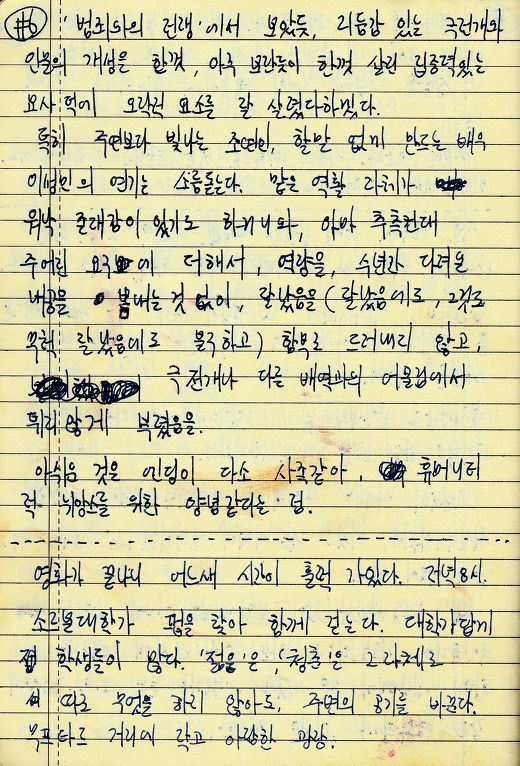 #6 '범죄와의 전쟁'에서 보았듯, 리듬감 있는 극전개와
인물의 개성을 한껏, 아주 보란듯이 한껏 살린 집중력있는
묘사 덕에 오락적 요소를 잘 살렸다하겠다.
특히 주연보다 빛나는 조연인, 할말 없게 만드는 배우
이범민의 연기는 소름돋는다. 맡은 역할 자체가
워낙 존재감이 있기도 하거니와, 아마 추측컨대
주어진 요구에 더해서, 역량을, 수년간 다려온
내공을 봄내는것 없이, 잘났음을 (잘났음에도, 그것도
무척 잘났음에도 불구하고) 함부로 드러내지 않고,
극전개나 다른 배역과의 어울림에서
튀지않게 부렸음을.
아쉬운 것은 엔딩이 다소 사족같아, 휴머니티
적 뉘앙스를 위한 양념같다는 점.
영화가 끝나니 어느새 시간이 훌쩍 가있다. 저녁8시.
소르본대학가 펍을 찾아 함께 걷는다. 대학가답게
학생들이 많다. '젊음'은, '청춘'은 그자체로
따로 무엇을 하지 않아도, 주변의 공기를 바꾼다.
무프타르 거리의 작고 아담한 광장.